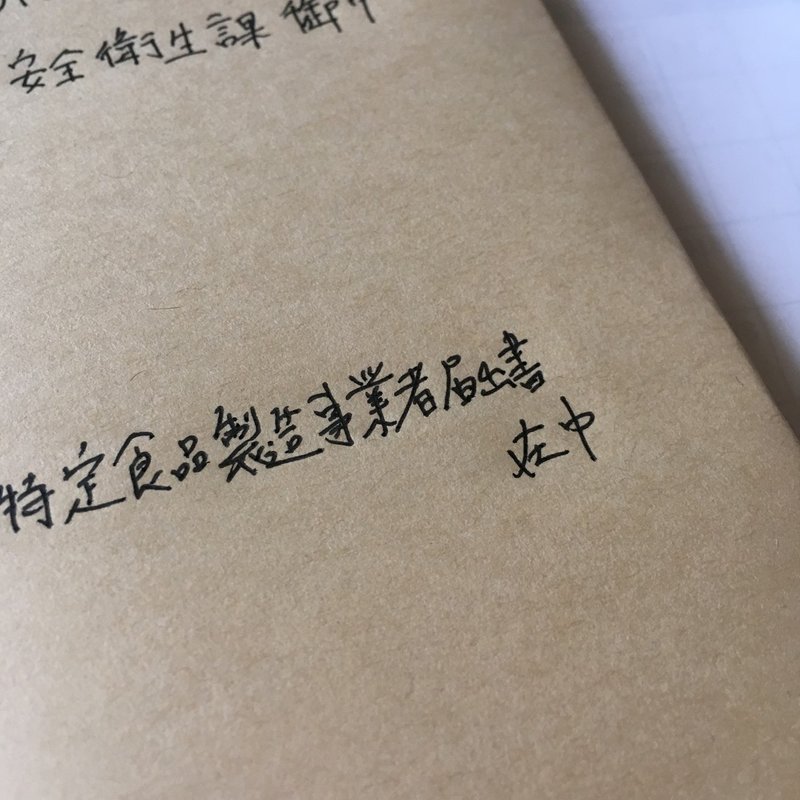 安全衛生課 御中
特定食品製造事業者届出書
在中